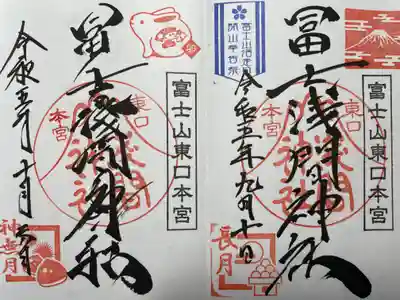 富士浅間神社
富士山東口本宮
東口
本宮
令和五年十月六日
神無月
卯
富士浅間神社
富士山東口本宮
東口
本宮
令和五年九月十日
長月